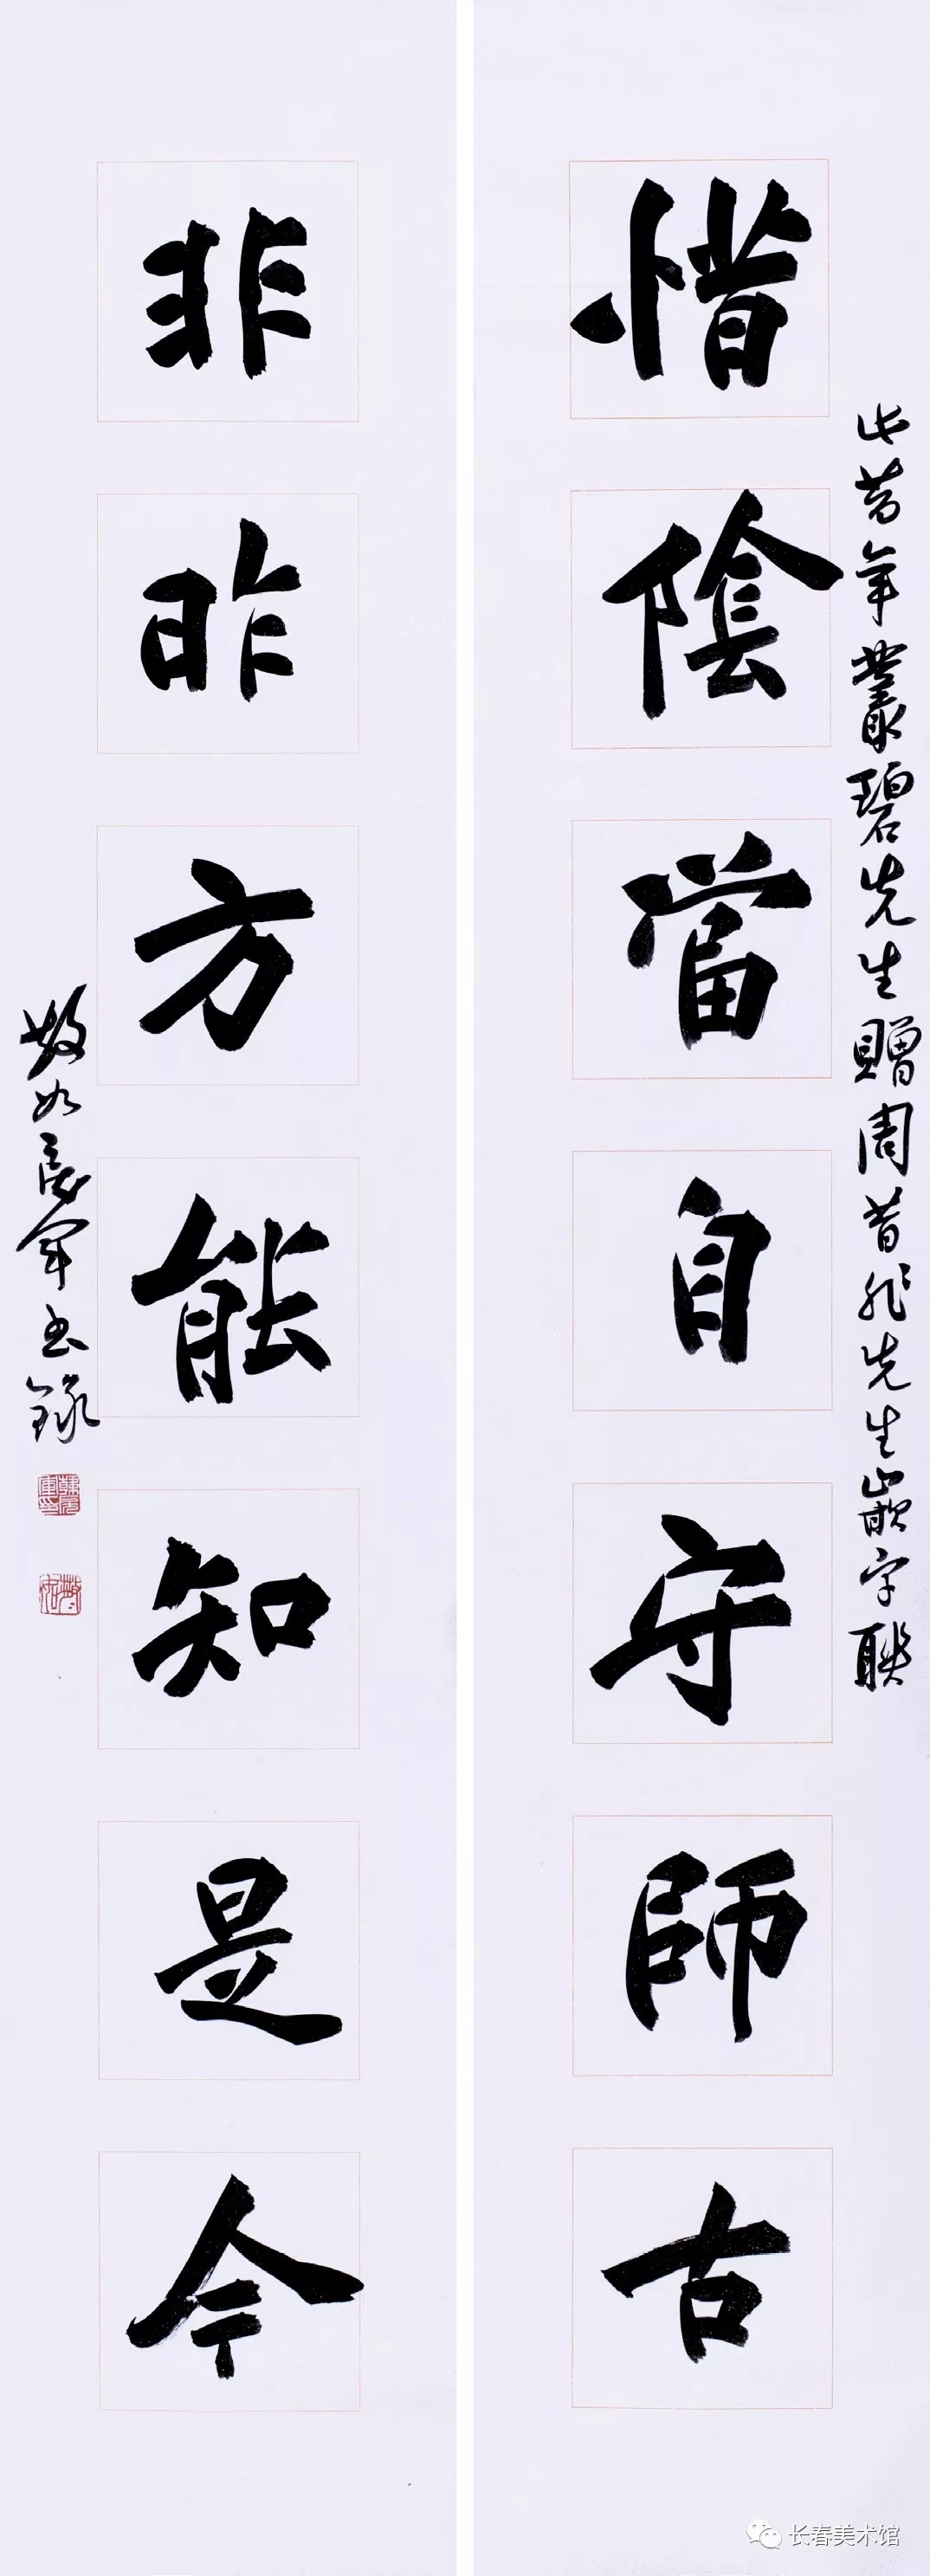 此昔年叢碧先生贈周昔非先生嵌字聯
惜陰當自守師古
非昨方能知是今
敬如長軍書錄
长春美术馆